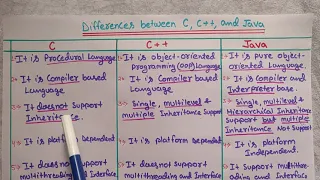 Differences between C, C++, and Java
C
It is Procedural Language
It is Compiler based
Language.
It doesnot Support
Inheritance.
It is platform Dependent
It doesnot Support
multithreading and Interface
C++
It is object-oriented
Programming (OOP) Language
It is Compiler based
Language.
Single, multilevel &
multiple Inheritance Support
It is platform Dependent.
It doesnot Support
multithreading and Interface
Java
It is pure object-
oriented Language.
It is Compiler and
Interpreter base.
Single, multilevel &
Hierarchical Inheritance
Support but multiple
Inheritance Not Support
It is platform
Independent.
It Support multithre-
ading and Interface